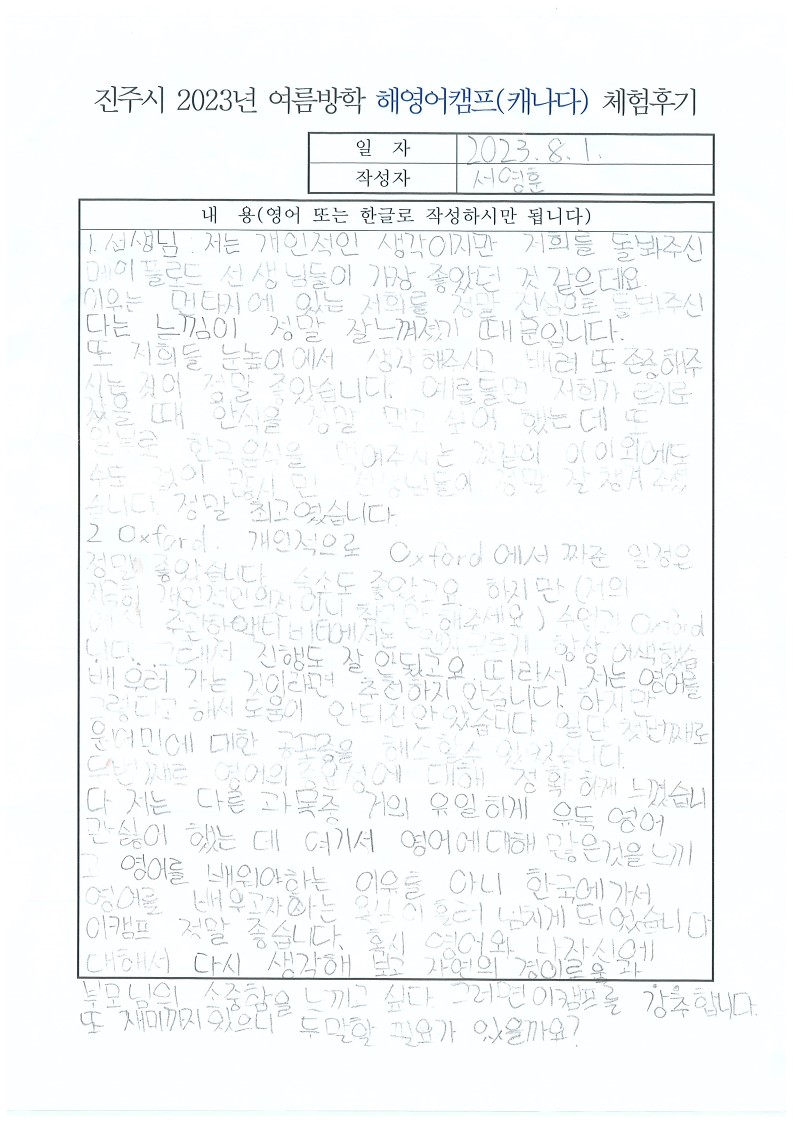 진주시 2023년 여름방학 해영어캠프(캐나다) 체험후기
일 자 2023. 8. 1.
작성자 서영훈
내 용(영어 또는 한글로 작성하시만 됩니다)
1. 선생님 : 저는 개인적인 생각이지만 저희들 돌봐주신
메이플로드 선생님들이 가장 좋았던 것 같은데요.
이유는 먼타지에 있는 저희를 정말 진심으로 돌봐주신
다는 느낌이 정말 잘 느껴졌기 때문입니다.
또 저희들 눈높이에서 생각해주시고 배려 또 존중해주
시는 점이 정말 좋았습니다. 예를들면 저희가
때 한식을 정말 먹고 싶어 했는데 또
일부로 한국음식을 먹여주시는 것같이 이 이외에도
수도 없이 선생님들이 정말 잘 챙겨주셨
습니다. 정말 최고였습니다.
2 Oxford. 개인적으로 Oxford에서 짜준 일정은
정말 좋았습니다. 숙소도 좋았고요. 하지만 (저의
지극히 개인적인 의지이니 참고만 해주세요) 수업인 Oxford
에서 주관하 액티비티에서도 항상 어색했습
니다. 그래서 진행도 잘 안됐고요. 따라서 저는 영어를
배우러 가는 것이라면 추천하지 안습니다. 하지만
그렇다고 해서 도움이 안되진 안았습니다. 일단 첫번째로
원어민에 대한 공포증을 해소할수 있었습니다.
두번째로 영어의 중요성에 대해 정확하게 느꼈습니
다 저는 다른 과목중 거의 유일하게 유독 영어
만 싫어 했는데 여기서 영어에 대해 많은것을 느끼
고 영어를 배워야하는 이유를 아니 한국에가서
영어를 배우고자하는 넘치게 되었습니다
이캠프 정말 좋습니다. 혹시 영어와 나자신에
대해서 다시 생각해 보고 자연의 경이로움과
부모님의 소중함을 느끼고 싶다 그러면 이캠프를 강추합니다.
또 재미까지 있으니 두말할 필요가 있을까요?